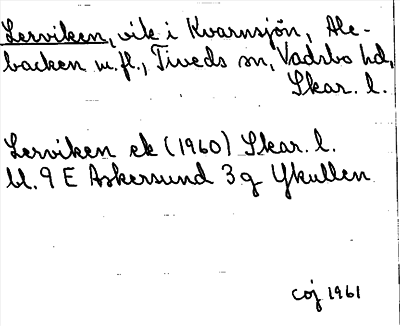 Lerviken, vik i Kvarnsjön, Ale-
backen m.fl., Tiveds sn, Vadsbo hd,
Skar. l.
Lerviken ek (1960) Skar. l.
bl. 9 E Askersund 3 g Ykullen
COJ 1961